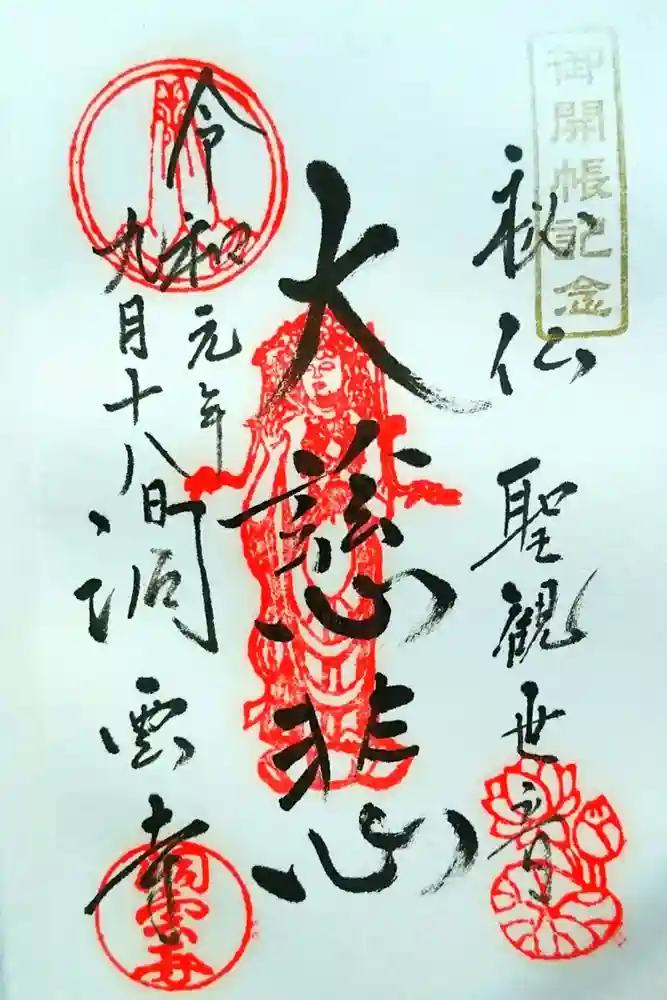 御開帳記念
秘仏 聖観世音
大慈悲心
令和元年
九月十八日
洞雲寺
洞雲寺